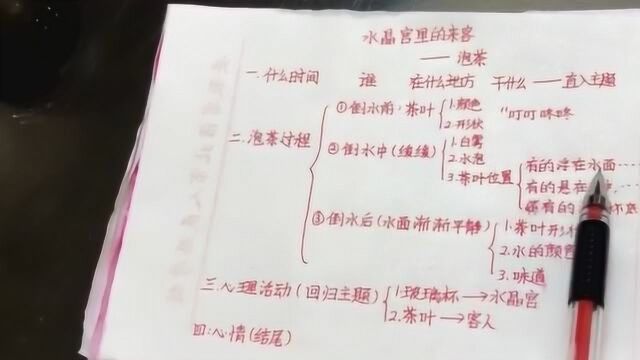 水晶宫里的来客
—— 泡茶
一.什么时间 谁 在什么地方 干什么 —— 直入主题
二.泡茶过程
①倒水前:茶叶
1.颜色
2.形状
"叮叮咚咚
②倒水中(缓缓)
1.白雾
2.水泡
3.茶叶位置
有的浮在水面……
有的悬在
还有的 底
③倒水后(水面渐渐平静)
1.茶叶形状
2.水的颜色
3.味道
三.心理活动(回归主题)
1.玻璃杯→水晶宫
2.茶叶→客人
四:心情(结尾)